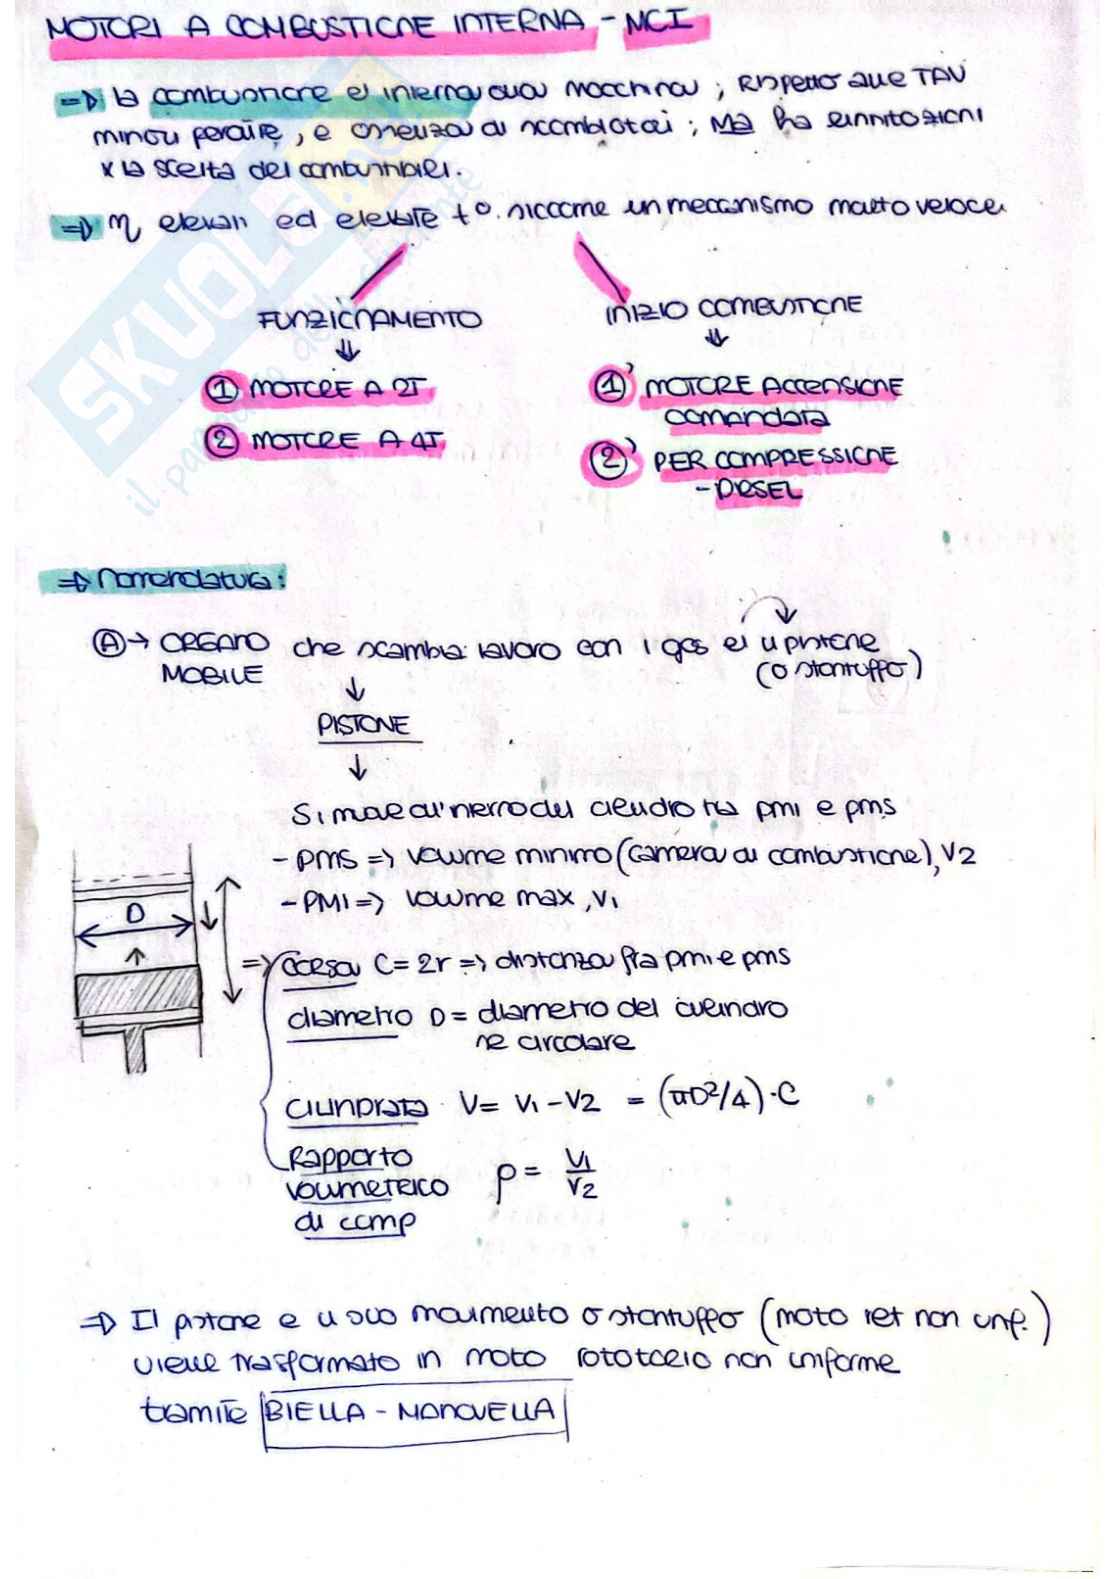 MOTORI A COMBUSTIONE INTERNA - MCI
=> la combustione è interna alla macchina ; Rispetto alle TAV
minori perdite, e assenza di scambiatori ; MA ha limitazioni
x la scelta dei combustibili.
=> η elevati ed elevate t°. siccome è un meccanismo molto veloce
FUNZIONAMENTO
INIZIO COMBUSTIONE
① MOTORE A 2T
② MOTORE A 4T
①' MOTORE ACCENSIONE
comandata
②' PER COMPRESSIONE
- DIESEL
=> Nomenclatura:
Ⓐ → ORGANO che scambia lavoro con i gas è il pistone
MOBILE
(o stantuffo)
PISTONE
Si muove all'interno del cilindro tra pmi e pms
- PMS => volume minimo (camera di combustione), V2
- PMI => volume max, V1
D
=> Corsa C = 2r => distanza fra pmi e pms
diametro D = diametro del cilindro
se circolare
cilindrata V = V1 - V2 = (πD²/4) · C
Rapporto
volumetrico
di comp
ρ = V1/V2
=> Il pistone e il suo movimento o stantuffo (moto ret non unif.)
viene trasformato in moto rototorio non uniforme
tramite BIELLA - MANOVELLA
SKUOLA.net
il paradiso dello studente